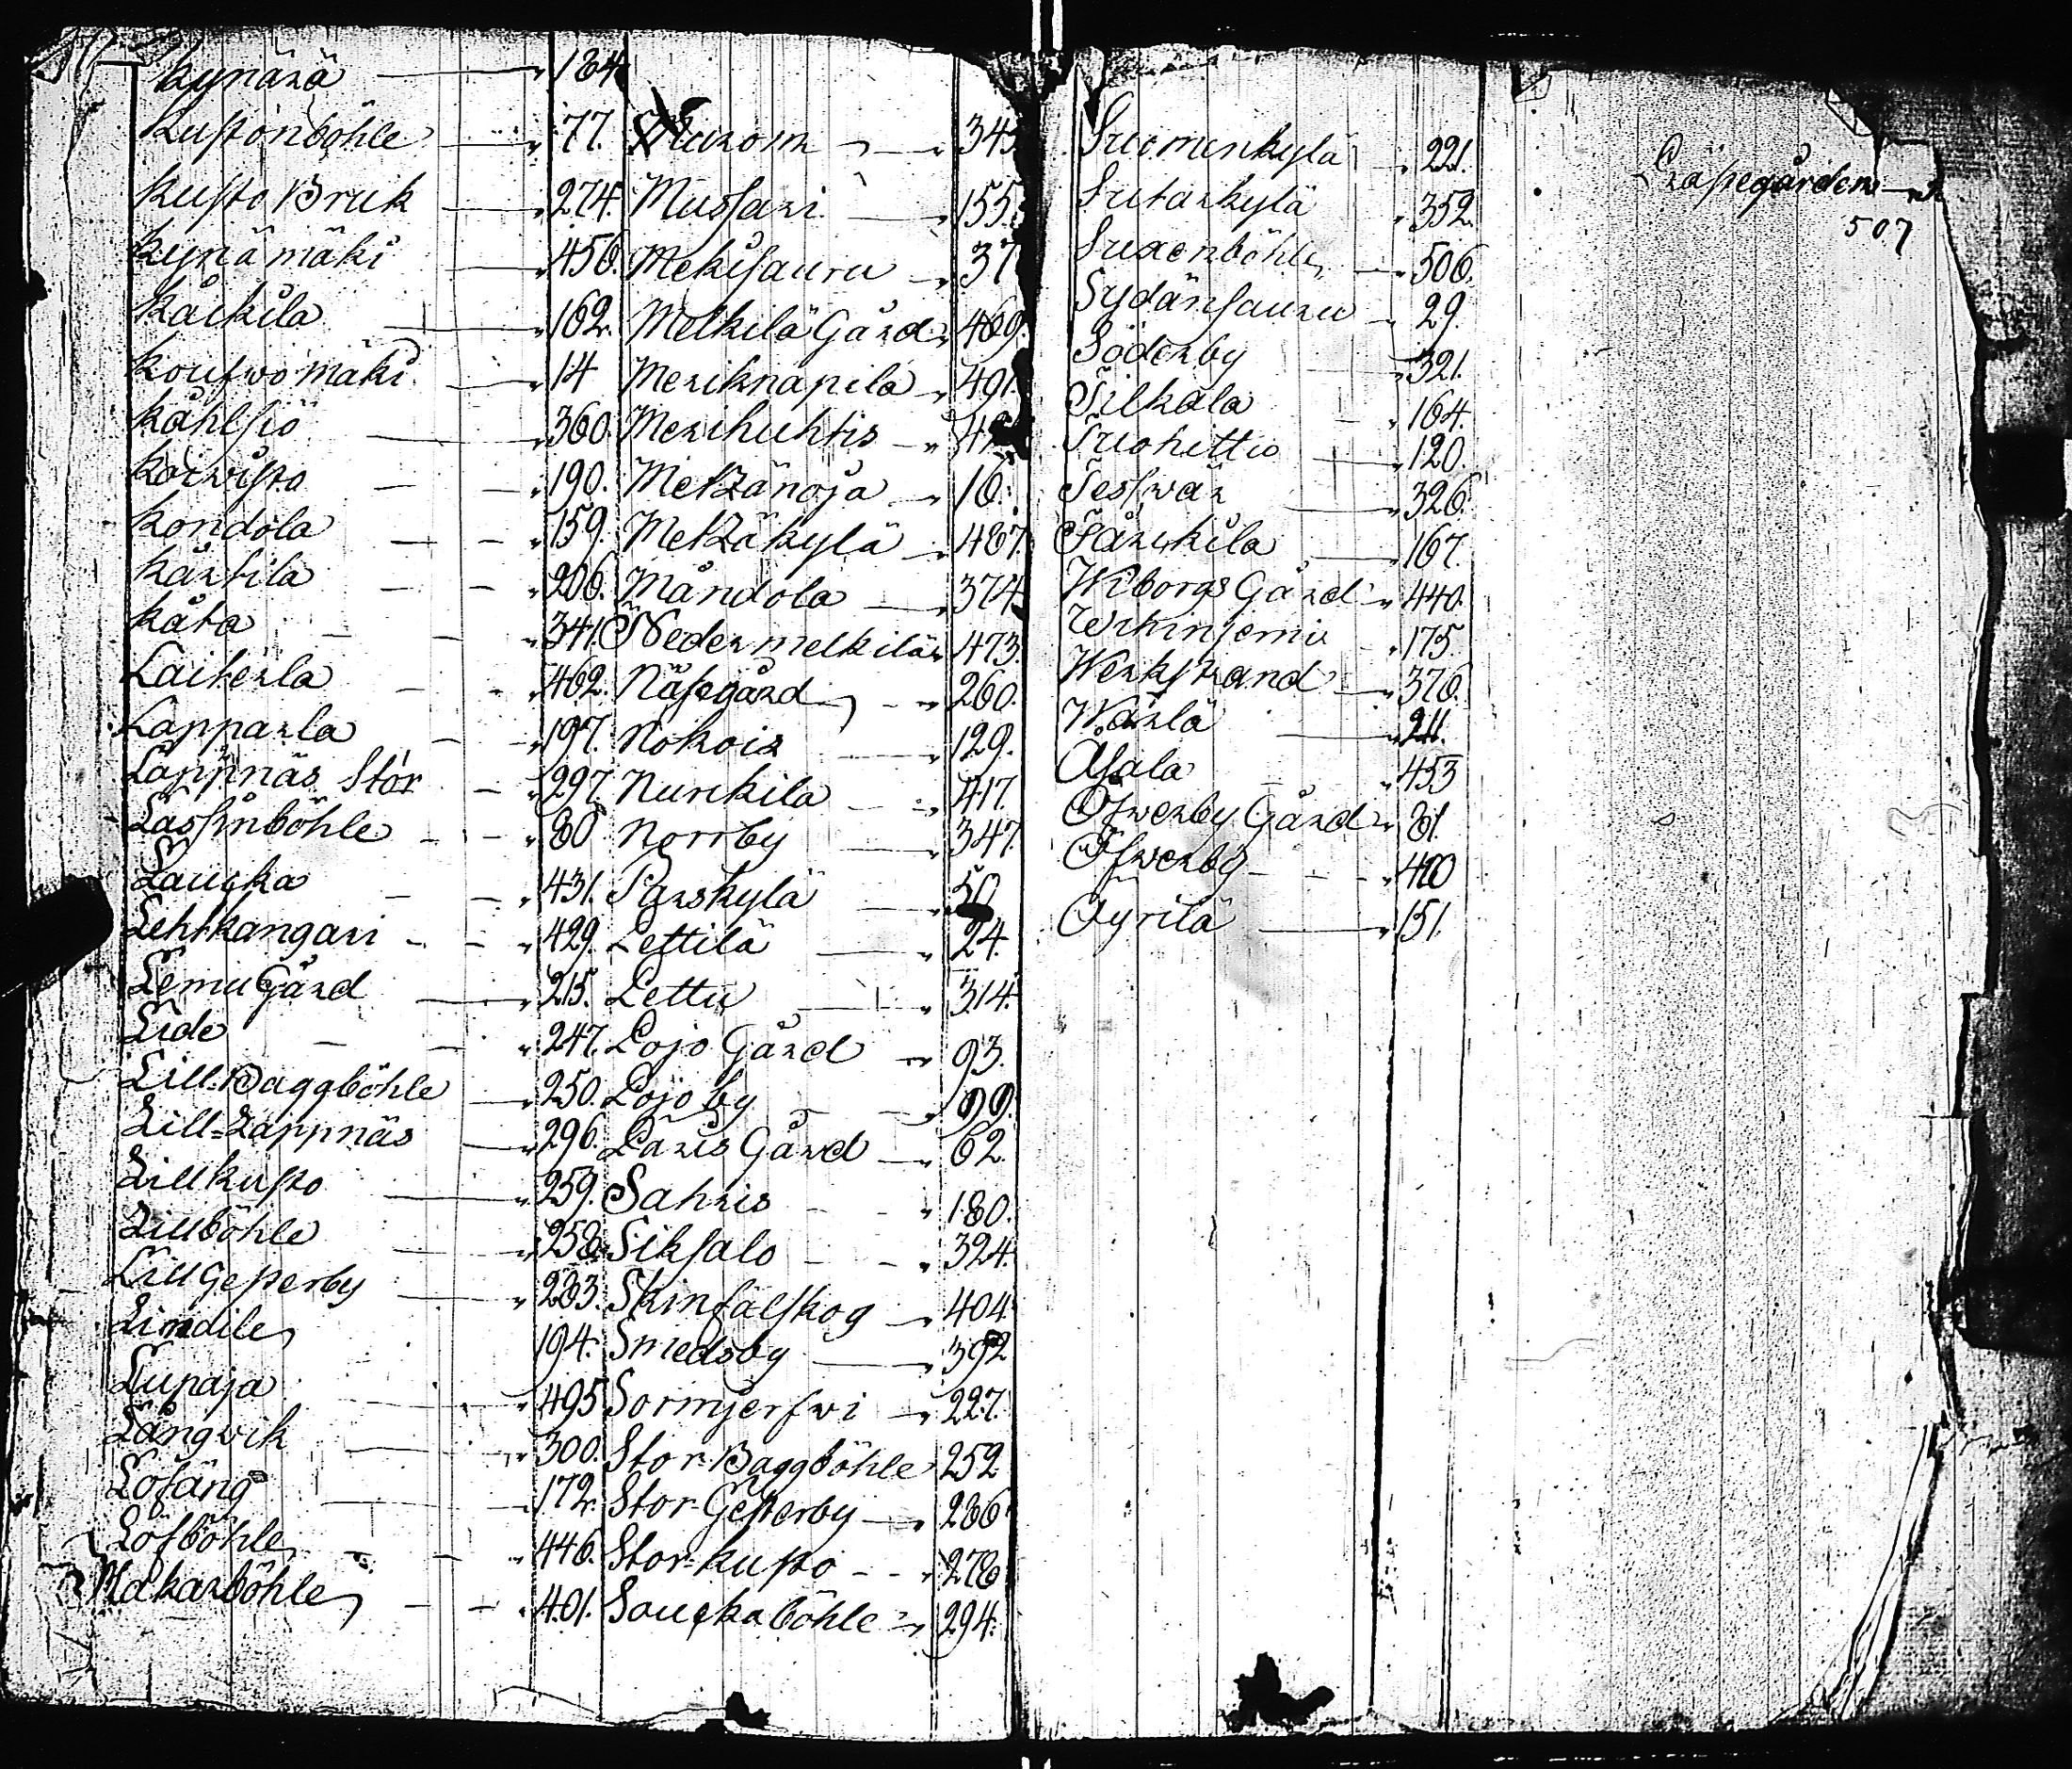 Kynärä 184
Kustonböhle 77.
Kusto Bruk 274.
Kynämäki 456.
Kackila 162.
Koufwomäki 14
Kåhlsiö 360
Koiwisto 190.
Kondola 159.
Kartila 206.
Kåta 341.
Laiterla 462.
Lapparla 197.
Lappnäs Stór 297
Lassinböhle 80
Laucka 431.
Lehtkangari 429.
Lemu Gård 215.
Lide 247.
Lill=Baggböhle 250.
Lill=Lappnäs 296.
Lillkusto 259.
Lillböhle 258
Lill Gesterby 283.
Lindile 194.
Lupaja 495
Långwik 300.
Löfäng 172.
Löfböhle 446.
Makarböhle 401.
345
Mussari 155.
Mekisauru 37
Melkilä Gård 469.
Meriknapila 491.
Merihuhtis
Metzänoja 16.
Metzäkylä 487.
Måndola 374
Neder melkilä 473.
Näsegård 260.
Nokois 129.
Nurckila 417.
Norrby 347.
Parskylä 50
Pettilä 24.
Pettu 314.
Lojo Gård 93.
Lojo by 99.
Laxis Gård 62.
Sahris 180.
Siksalo 324.
Skinfälskog 404.
Smedsby 392
Sormjerfwi 227.
Stor-Baggböhle 252
Stor-Gesterby 286
Stor-Kusto 278
Sauckaböhle 294.
Suomenkylä 221.
Sutarkylä 352.
Suxenböhle 506.
Sydänsauru 29.
Söderby 321.
Tilkala 164.
Truohittu 120.
Tesswär 326.
Tarckila 167.
Wiborgs Gård 440.
175.
Werkstrand 376.
Wärlä 211.
Åsala 453
Öfwerby Gård 81.
Öfwerby 420
Äyrilä 151.
Prästegården
507